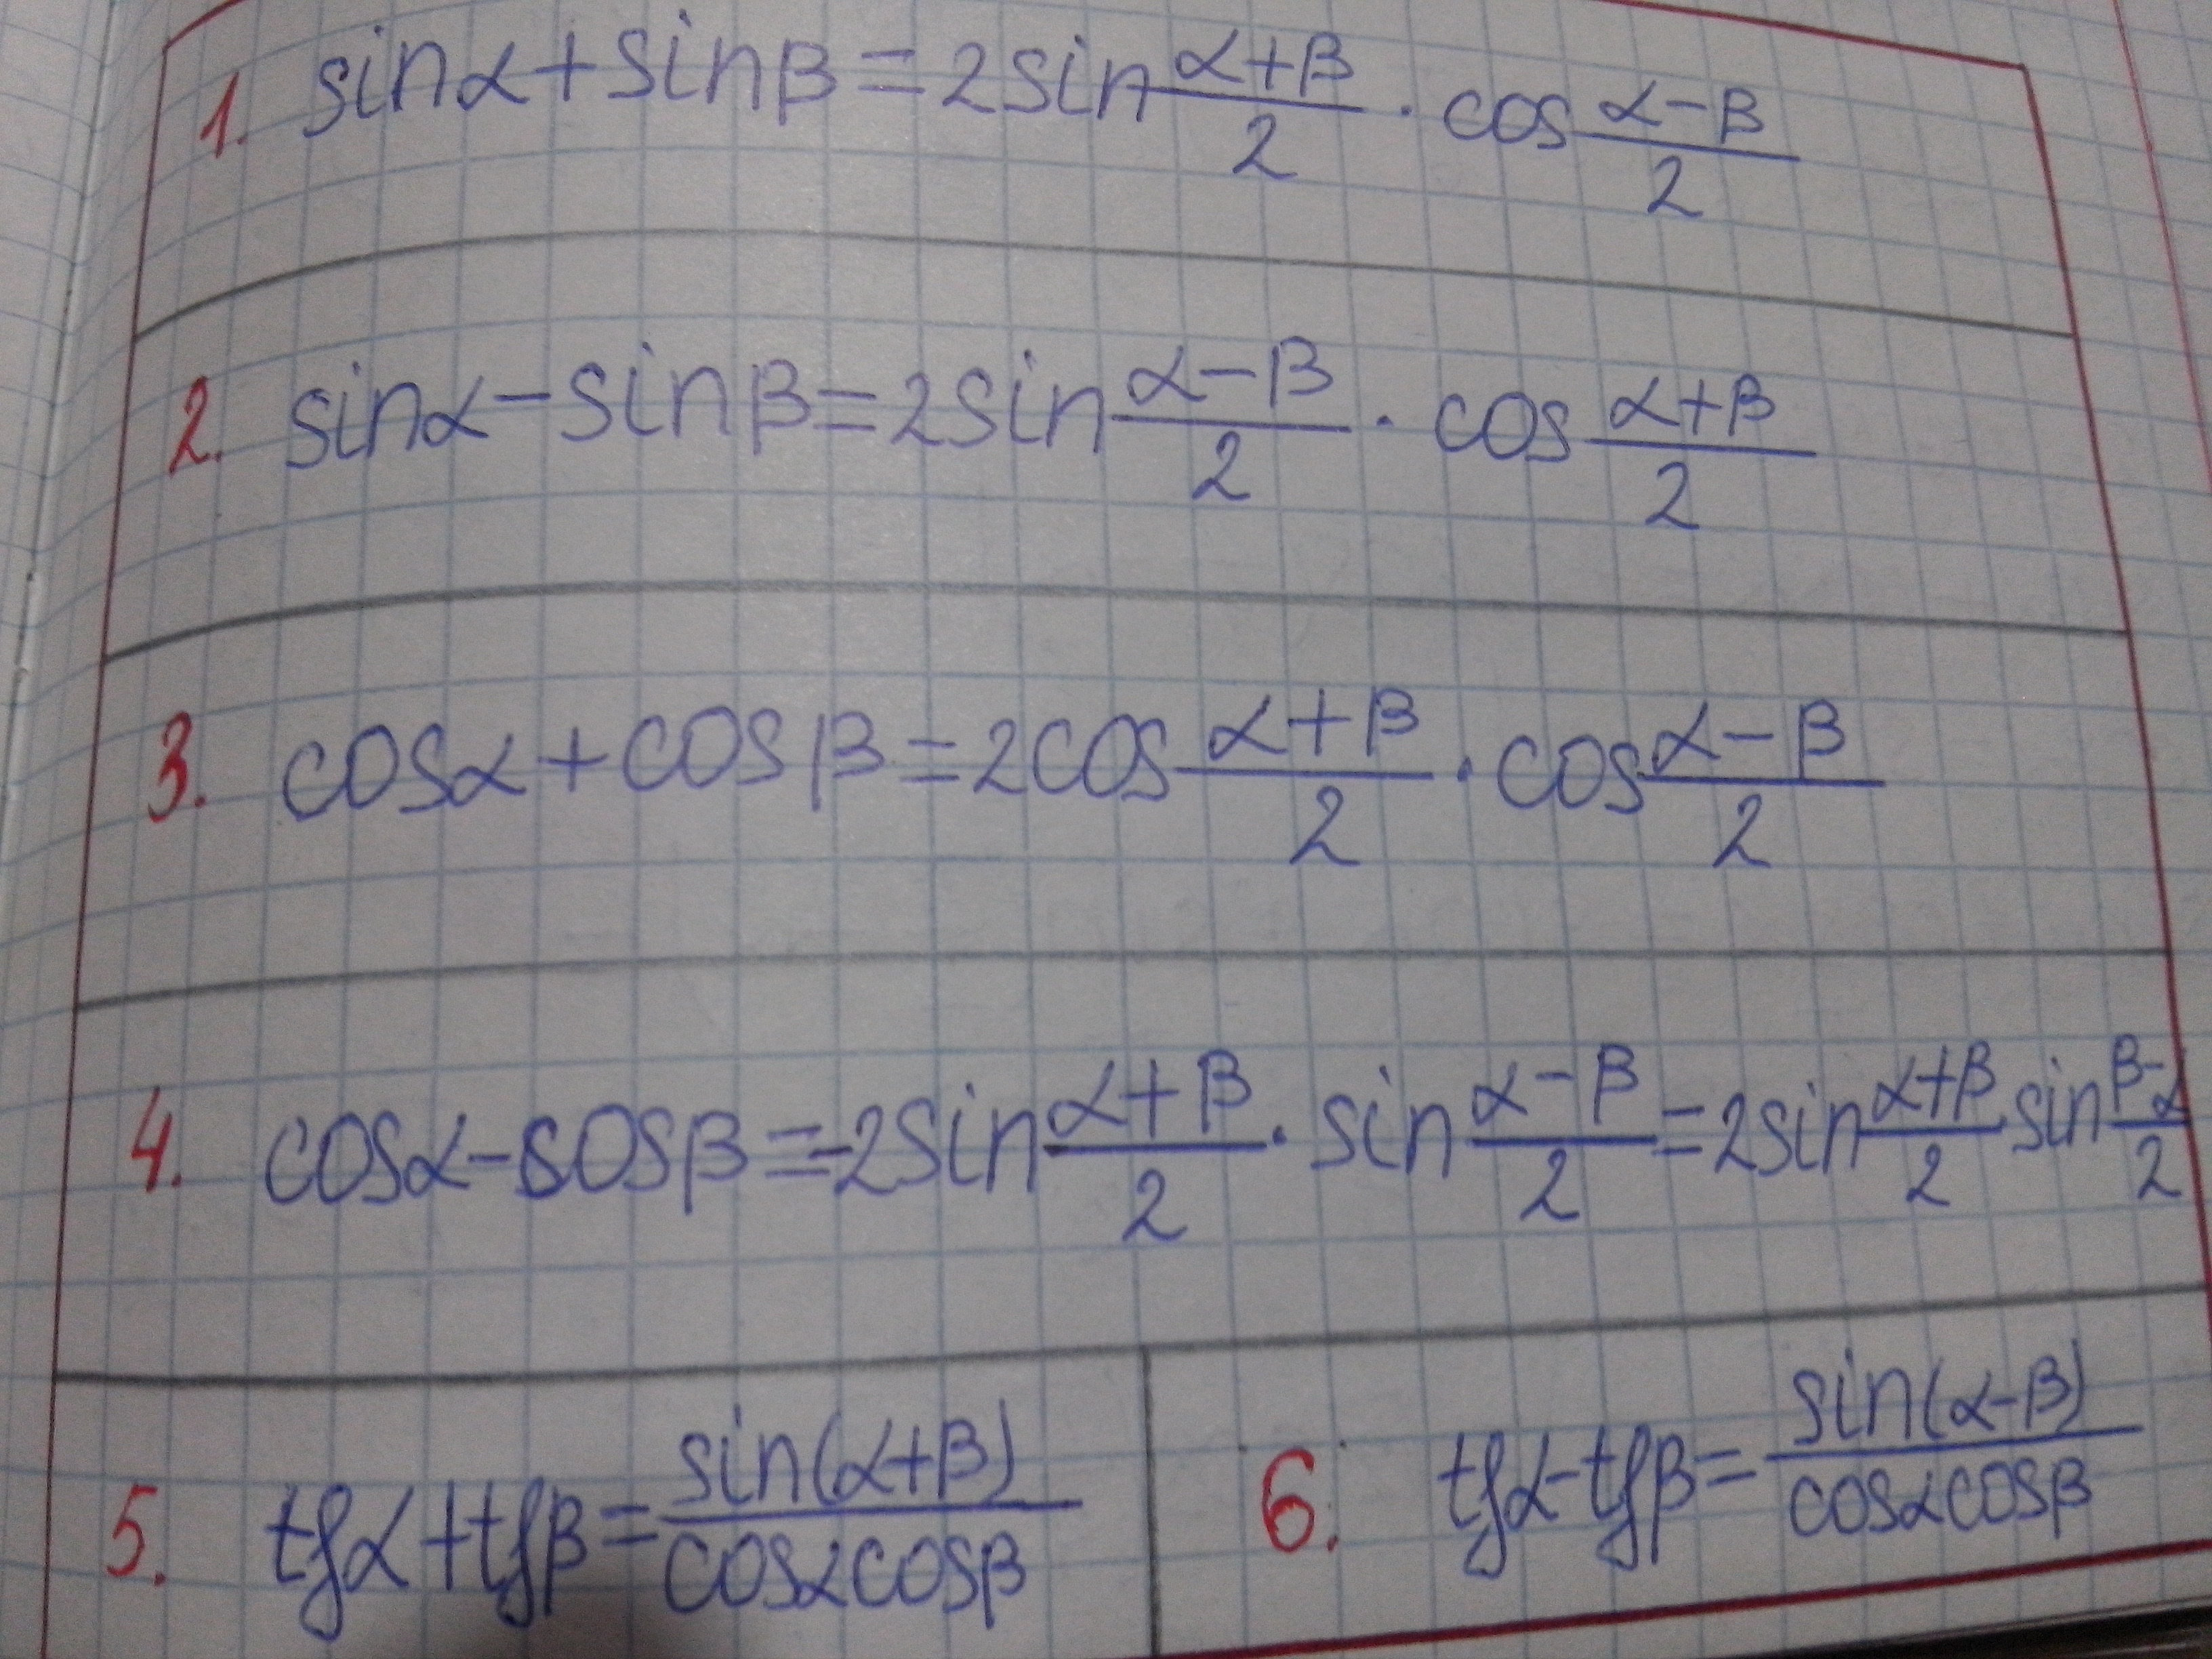 1. sinα+sinβ=2sin (α+β)/2 · cos (α−β)/2
2. sinα−sinβ=2sin (α−β)/2 · cos (α+β)/2
3. cosα+cosβ=2cos (α+β)/2 · cos (α−β)/2
4. cosα−cosβ=−2sin (α+β)/2 · sin (α−β)/2 =2sin (α+β)/2 sin (β−α)/2
5. tgα+tgβ= sin(α+β)/cosαcosβ
6. tgα−tgβ= sin(α−β)/cosαcosβ